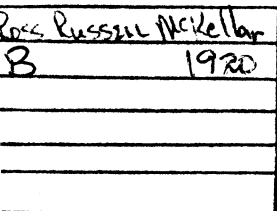 Ross Russell McKellar
B 1920